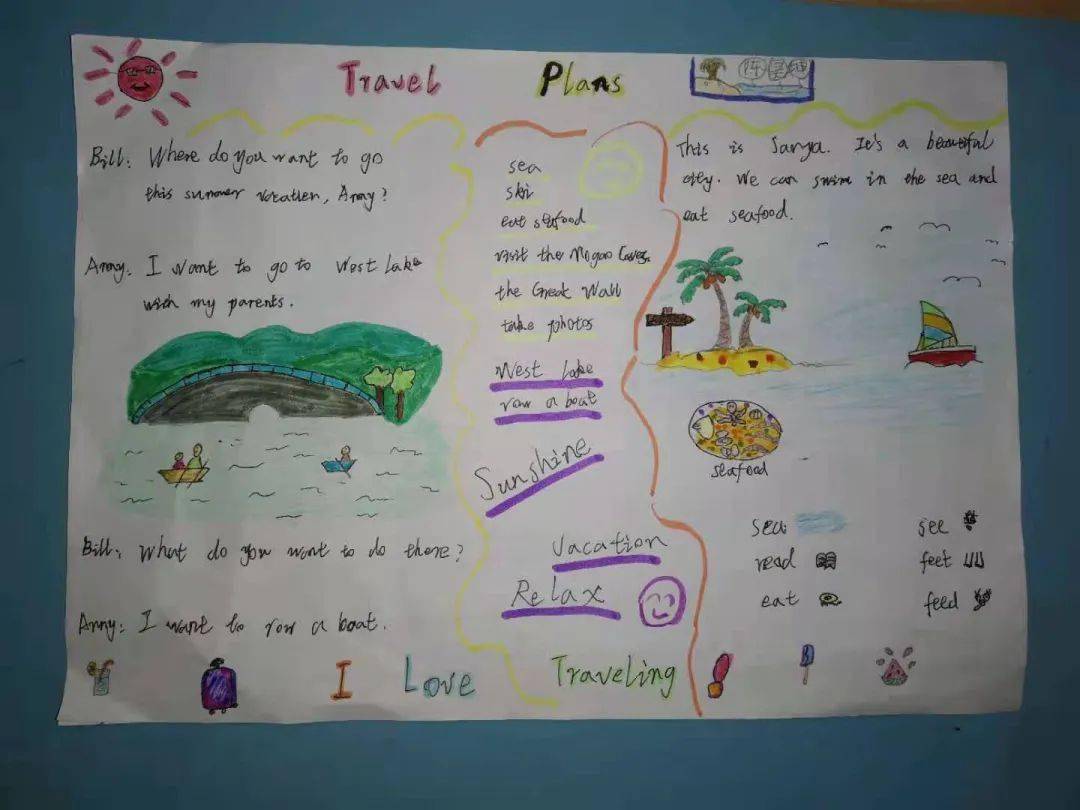 Travel Plans
Bill: Where do you want to go
this summer vacation, Anny?
Anny: I want to go to West Lake
with my parents.
Bill: What do you want to do there?
Anny: I want to row a boat.
sea
ski
eat seafood
visit the Mogao Caves.
the Great Wall
take photos
West Lake
row a boat
Sunshine
Vacation
Relax
This is Sanya. It's a beautiful
city. We can swim in the sea and
eat seafood.
seafood
sea
see
read
feet
eat
feed
I Love Traveling